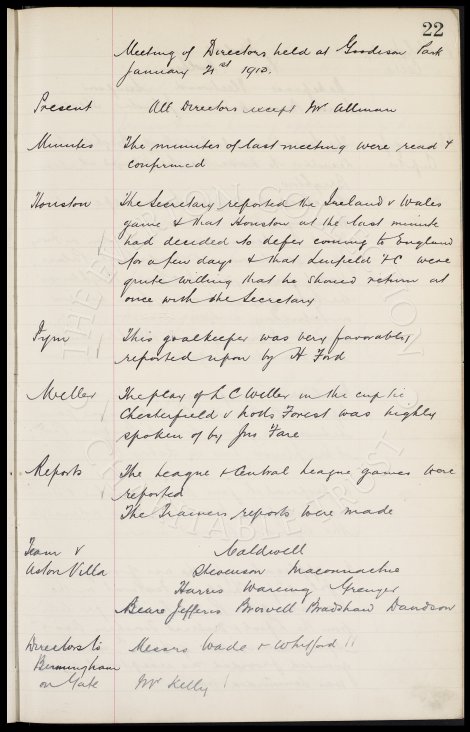 22
Meeting of Directors held at Goodison Park
January 21st 1913.
Present All Directors except Mr Allman
Minutes The minutes of last meeting were read &
confirmed
Houston The Secretary reported the Ireland v Wales
game & that Houston at the last minute
had decided to defer coming to England
for a few days & that Linfield FC were
quite willing that he should return at
once with the Secretary
Pym This goalkeeper was very favorably
reported upon by H Ford
Weller The play of L C Weller in the cup tie
Chesterfield v Notts Forest was highly
spoken of by Jos Fare
Reports The League & Central League games were
reported
The Trainers reports were made
Team v Caldwell
Aston Villa Stevenson Maconnachie
Harris Wareing Grenyer
Beare Jefferis Browell Bradshaw Davidson
Directors to Messrs Wade & Whitford
Birmingham
on Gate Mr Kelly